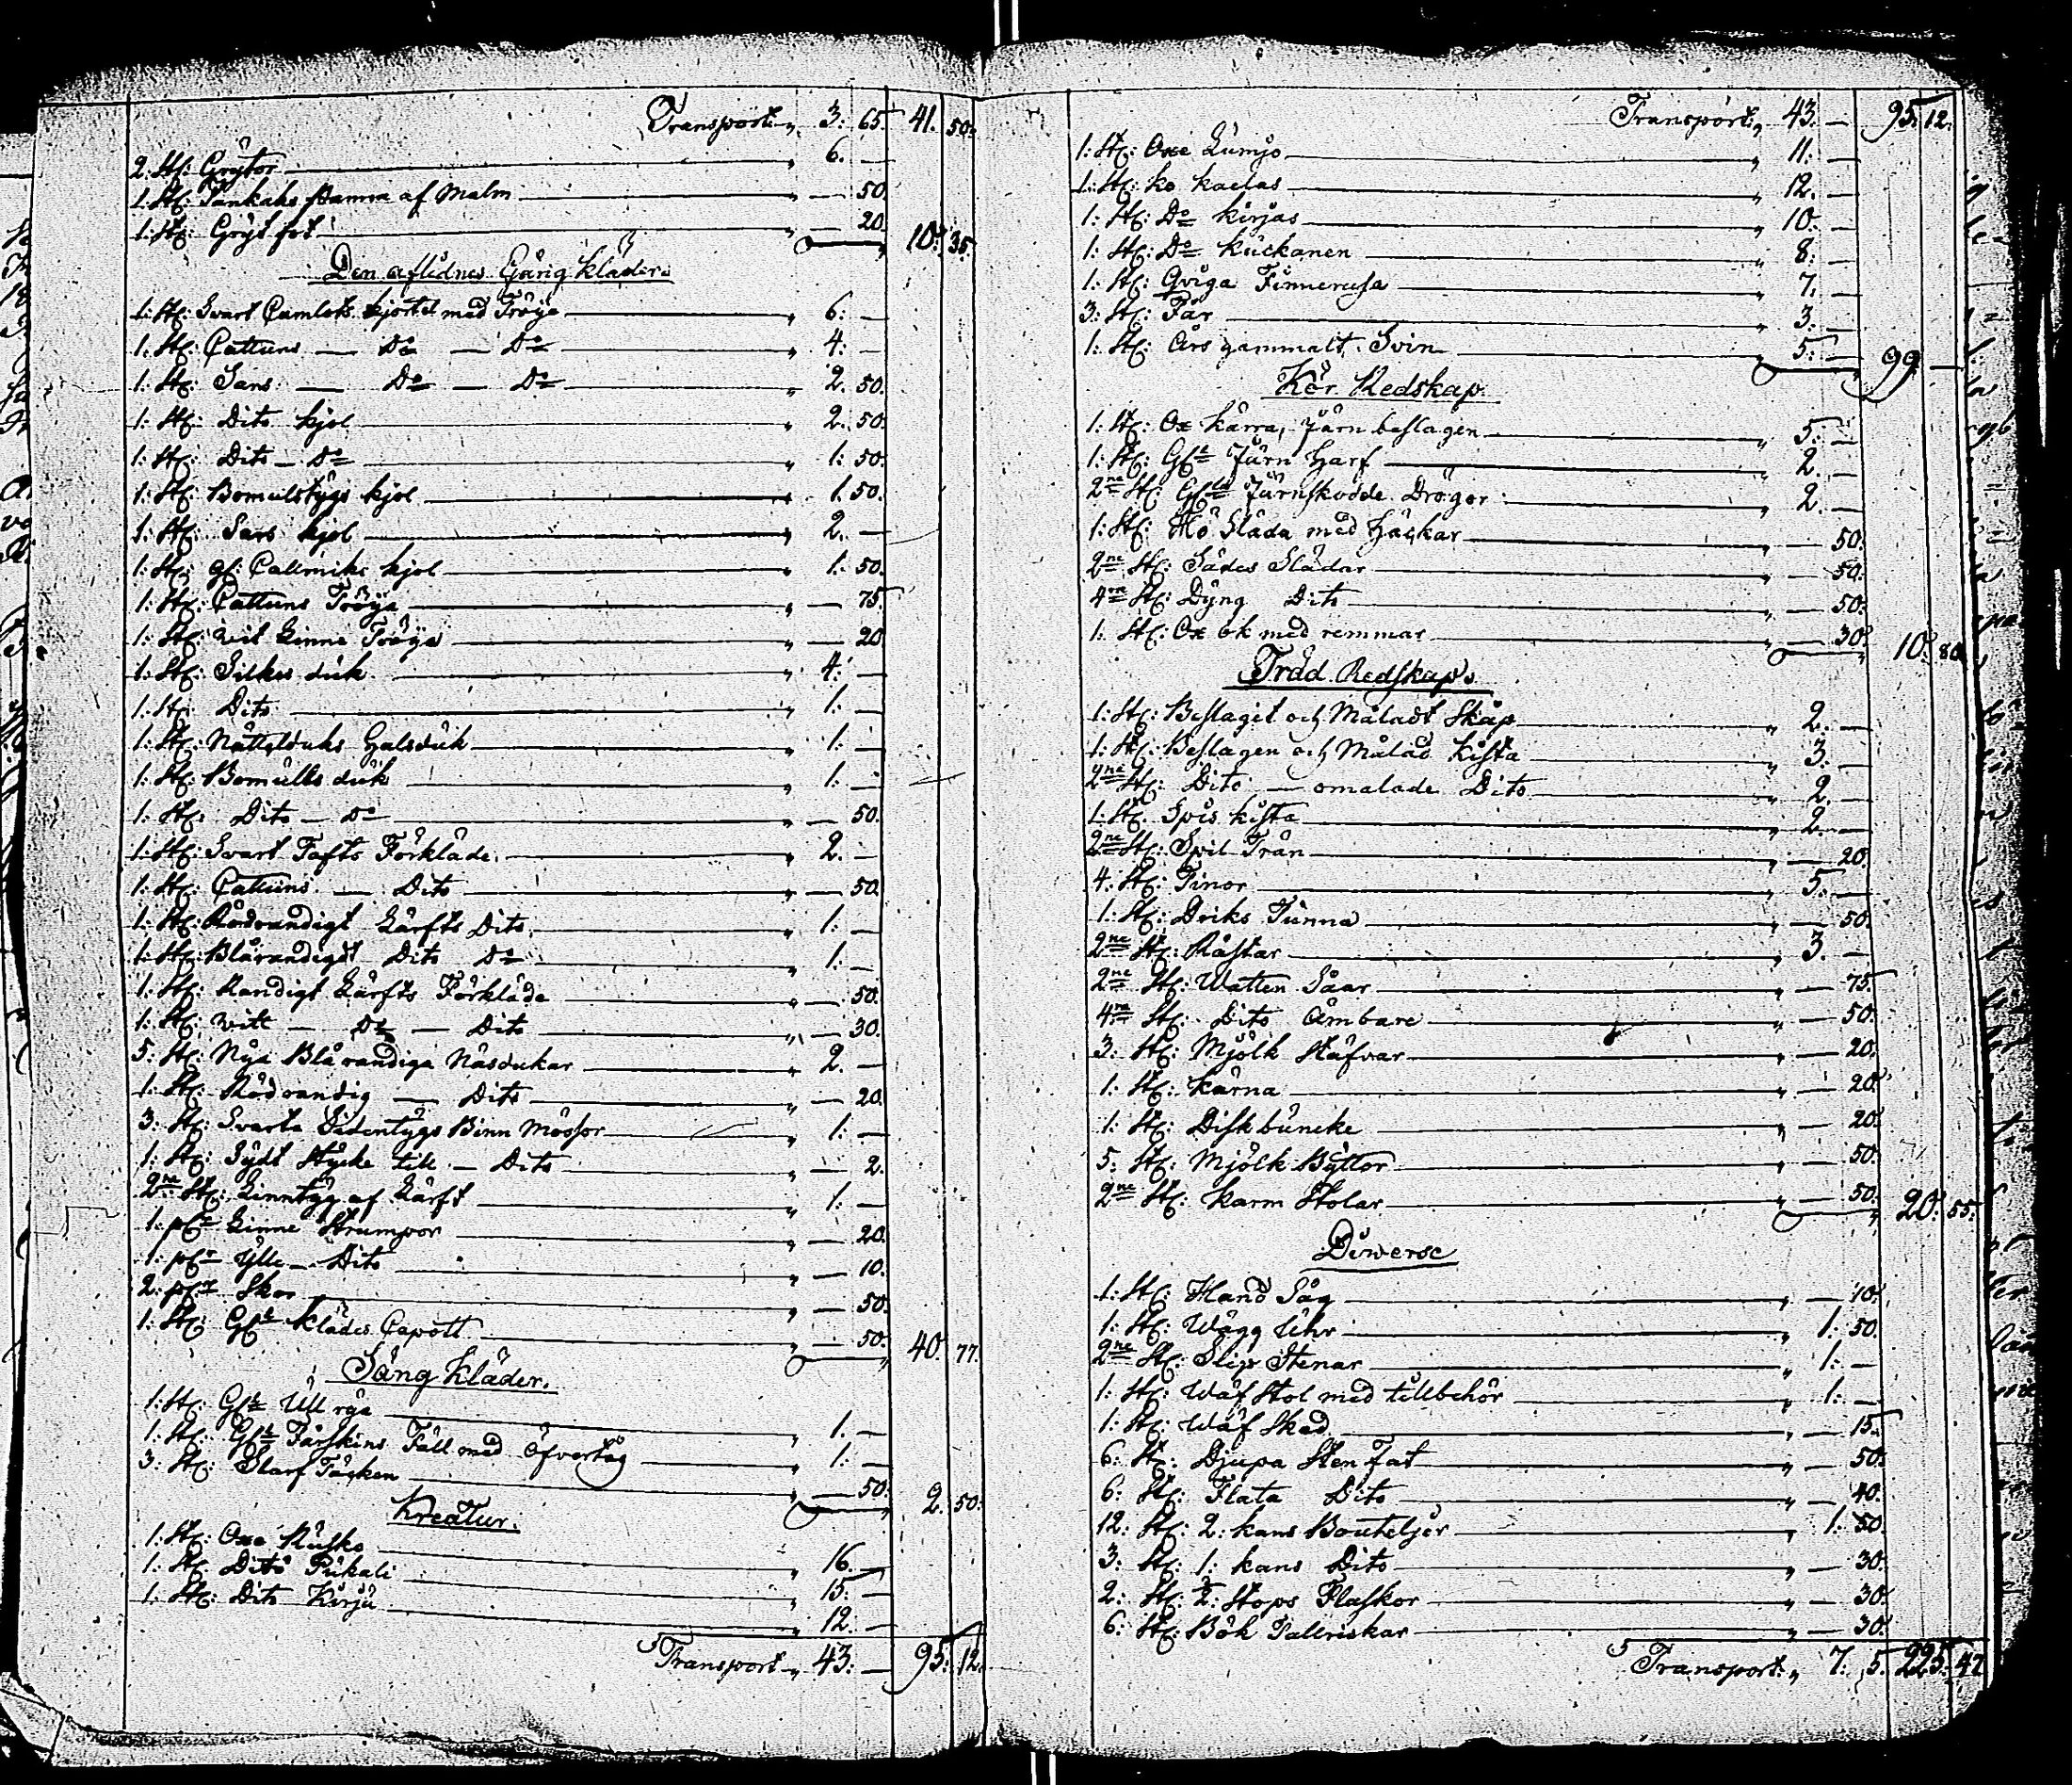 Transport „ 3: 65. 41. 50:
2. St: Grytor „ 6. —
1. St: Pankaks Panna af Malm „ — 50.
1. St: Gryt fot „ — 20. 10: 35.
Den aflidnes Gång kläder:
1: St: Svart Camlots kjortel med Tröya „ 6: —
1: St: Cattuns — Do — Do „ 4: —
1: St: Sars — Do — Do „ 2. 50.
1: St: Dito kjol „ 2. 50.
1: St: Dito — Do „ 1: 50.
1: St: Bomulstygs kjol „ 1. 50.
1: St: Sars kjol „ 2. —
1: St: gl: Callmiks kjol „ 1. 50.
1: St: Cattuns Tröya „ — 75.
1: St: wit Linne Tröya „ — 20
1: St: Silkes duk „ 4: —
1: St: Dito „ 1: —
1: St: Nättelduks Halsduk „ 1: —
1: St: Bomulls duk „ 1: —
1: St: Dito — Do „ — 50.
1: St: Svart Tafts Förkläde „ 2. —
1: St: Cattuns — Dito „ — 50.
1: St: Rödrandigt Lärfts Dito „ 1: —
1: St: Blårandigt Dito Do „ 1: —
1: St: Randigt Lärfts Förkläde „ — 50.
1: St: witt — Do — Dito „ — 30.
5: St: Nya Blå randiga Näsdukar „ 2. —
1: St: Rödrandig — Dito „ — 20.
3: St: Svarta Sidentygs Binn Mössor „ 1: —
1: St: Sydt Stycke till — Dito „ — 2.
2ne St: Linntyg af Lärft „ 1: —
1: pr Linne Strumpor „ — 20.
1: pr Ylle — Dito „ — 10.
2: pr Skor „ — 50.
1: St: Glt Klädes Capott „ — 50. 40. 77.
Säng kläder.
1: St: Glt Ull rya „ 1. —
1: St: Glt Fårskins Fäll med Öfvertåg „ 1: —
3: St: Slarf Täcken „ — 50. 2. 50.
Kreatur.
1: St: Oxe Rusko „ 16. —
1: St: Dito Pukali „ 15. —
1: St: Dito Kirju „ 12. —
Transport „ 43: — 95: 12.
Transport: „ 43. — 95. 12.
1: St: Oxe Lumjo „ 11. —
1: St: ko kaelas „ 12. —
1: St: Do kirjas „ 10. —
1: St: Do kuckanen „ 8: —
1: St: Qviga „ 7. —
3: St: Får „ 3. —
1: St: Års gammalt Svin „ 5: — 99 —
Kör Redskap.
1: St: Ox kärra, Järn beslagen „ 5: —
1: St: Glt Järn Harf „ 2. —
2ne St: Järnskodde Drögor „ 2. —
1: St: Hö Släda med Häckar „ — 50.
2ne St: Sädes Slädar „ — 50.
4ra St: Dyng Dito „ — 50.
1: St: Ox ok med remmar „ — 30. 10. 80.
Träd Redskap.
1: St: Beslagit och Måladt Skåp „ 2. —
1: St: Beslagen och Målad Kista „ 3. —
2ne St: Dito — omalade Dito „ 2. —
1: St: Spis kista „ 2. —
2ne St: Spil Trån „ — 20.
4: St: Tinor „ 5: —
1: St: Driks Tunna „ — 50.
2ne St: Råstar „ 3. —
2ne St: Watten Såar „ — 75.
4ra St: Dito Ämbare „ — 50.
3: St: Mjölk Stäfvar „ — 20.
1: St: Kärna „ — 20.
1: St: Diskbuncke „ — 20.
5: St: Mjölk Byttor „ — 50.
2ne St: Karm Stolar „ — 50. 20. 55.
Diverse
1: St: Hand Såg „ — 10.
1: St: Wägg Uhr „ 1: 50.
2ne St: Slip Stenar „ 1: —
1: St: Wäf Stol med tillbehör „ 1: —
1: St: Wäf Sked „ — 15.
6: St: Djupa Sten Fat „ — 50.
6: St: Flata Dito „ — 40.
12: St: 2: kans Bouteljer „ 1: 50.
3: St: 1: kans Dito „ — 30.
2: St: 2: Stops Flaskor „ — 30.
6: St: Bök Tallriskar „ — 30.
Transport: „ 7. 5. 225. 47